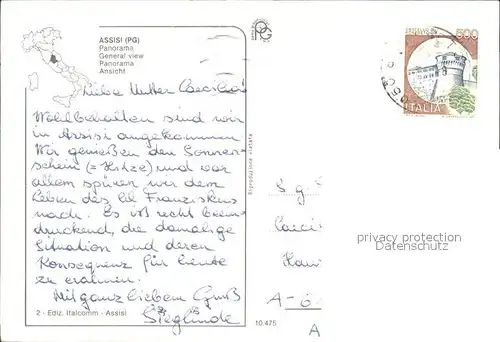 ASSISI (PG)
Panorama
General view
Panorama
Ansicht
Liebe Mutter
Wohlbehalten sind wir
in Assisi angekommen.
Wir genießen den Sonnen-
schein (= Hitze) und vor
allem spüren wir dem
Leben des hl Franziskus
nach. Es ist recht beein-
druckend, die damalige
Situation und deren
Konsequenz für heute
zu erahnen.
Mit ganz lieben Gruß
Sieglinde
2 - Ediz. Italcomm - Assisi
10.475
Riproduzione vietata
PG
500
ITALIA
S. g.
A-
A
privacy protection
Datenschutz